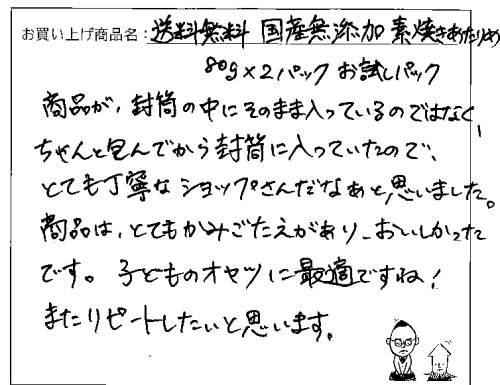 お買い上げ商品名：送料無料 国産無添加 素焼きあたりめ
80g×2パック お試しパック
商品が、封筒の中にそのまま入っているのではなく、
ちゃんと包んでから封筒に入っていたので、
とても丁寧なショップさんだなぁと思いました。
商品は、とてもかみごたえがあり、おいしかった
です。子どものオヤツに最適ですね！
またリピートしたいと思います。